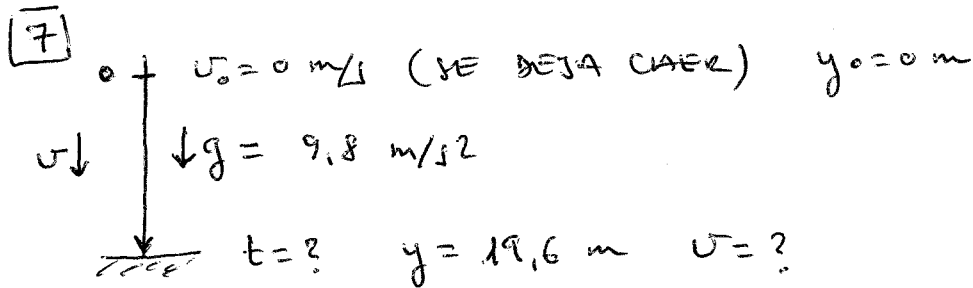 7
0 v₀ = 0 m/s (SE DEJA CAER) y₀ = 0 m
v↓ ↓g = 9,8 m/s2
t = ? y = 19,6 m v = ?